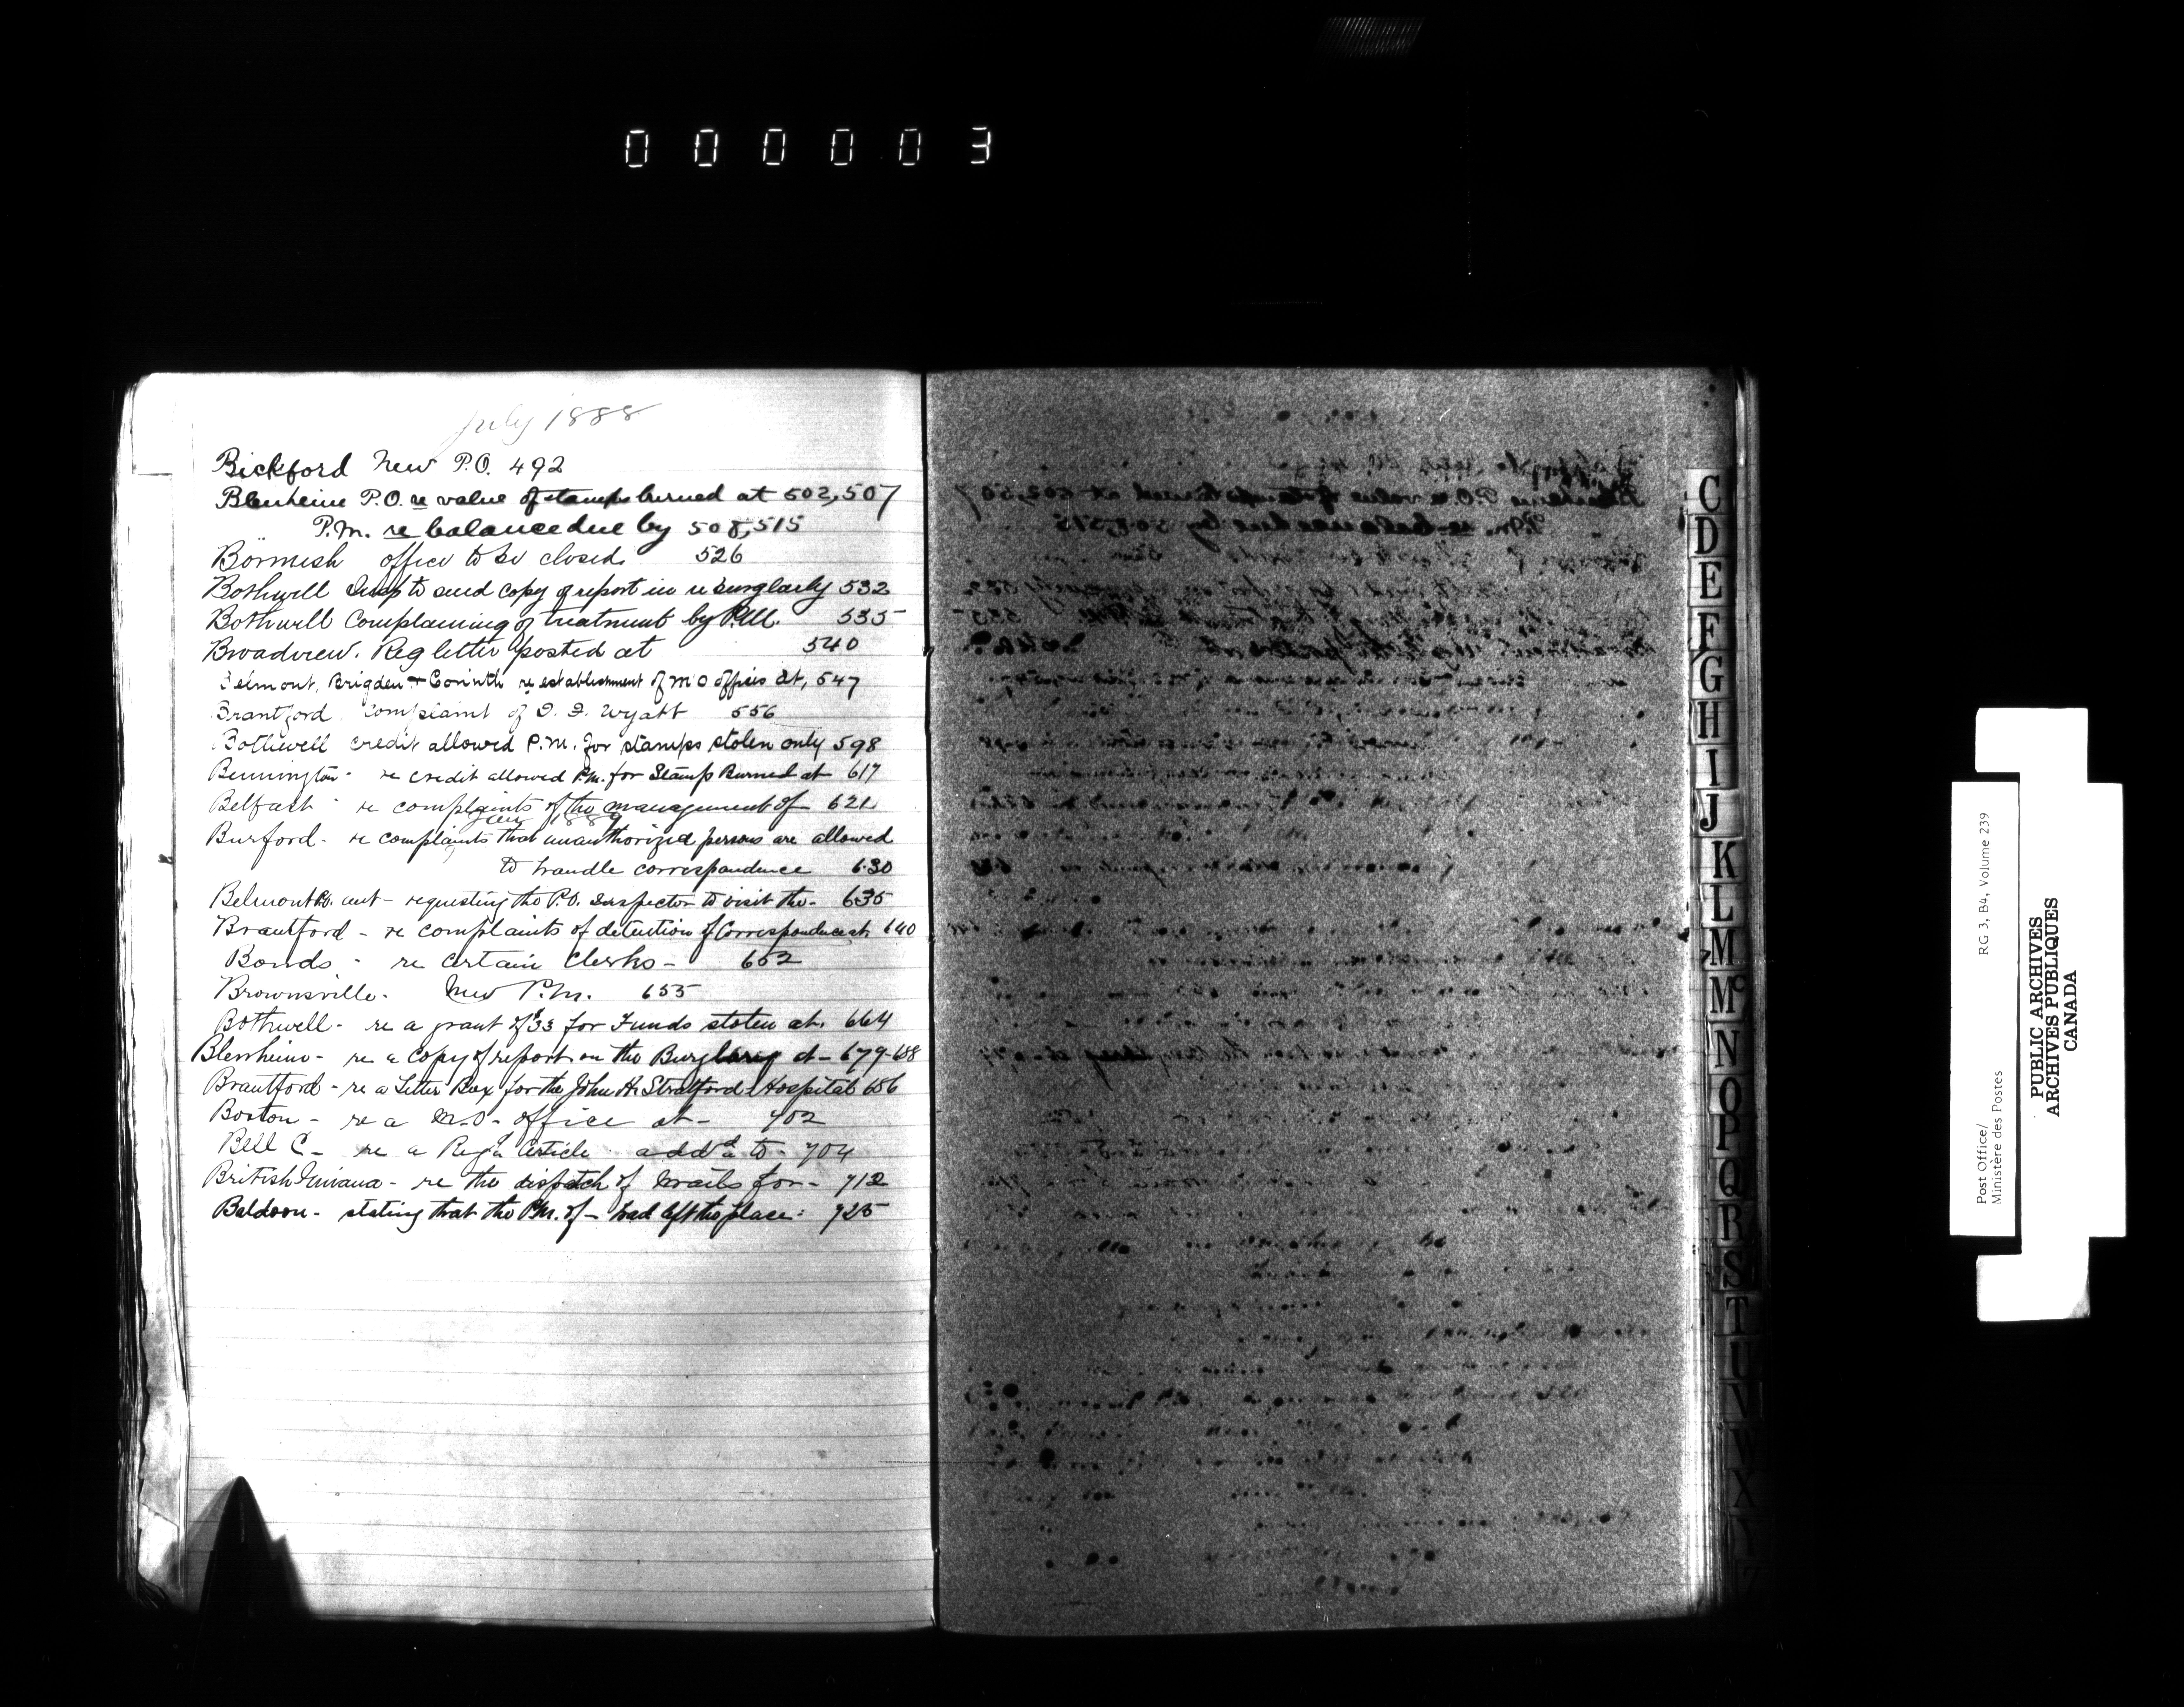 000003
July 1888
Bickford New P.O. 492
Blenheim P.O. re value of stamps burned at 502,507
P.M. re balance due by 508,515
Bornish office to be closed. 526
Bothwell Insp to send copy of report in re burglary 532
Bothwell Complaining of treatment by P.M. 535
Broadview. Reg letter posted at 540
Belmont, Brigden + Corinth re establishment of M O offices at, 547
Brantford. Complaint of Wyatt 556
Bothwell credit allowed P.M. for stamps stolen only 598
Bennington - re credit allowed P.M. for Stamps Burned at 617
Belfast - re complaints of the management of 621
1889
Burford - re complaints that unauthorized persons are allowed
to handle correspondence 630
Belmont - requesting the P.O. Inspector to visit the - 635
Brantford - re complaints of detention of Correspondence at 640
Bonds - re certain Clerks - 652
Brownsville. New P.M. 655
Bothwell - re a grant of $33 for Funds stolen at. 664
Blenheim - re a Copy of report on the Burglary at - 679-688
Brantford - re a Letter Box for the John H. Stratford Hospital 686
Boston - re a M.O. office at - 702
Bell C - re a Reg'd Article add'd to - 704
British Guiana - re the dispatch of Mails for - 712
Baldoon - stating that the P.M. of - had left the place: 725
C
D
E
F
G
H
I
J
K
L
M
Mc
N
O
P
Q
R
S
T
U
V
W
X
Y
Z
Post Office/ RG 3, B4, Volume 239
Ministère des Postes
PUBLIC ARCHIVES
ARCHIVES PUBLIQUES
CANADA